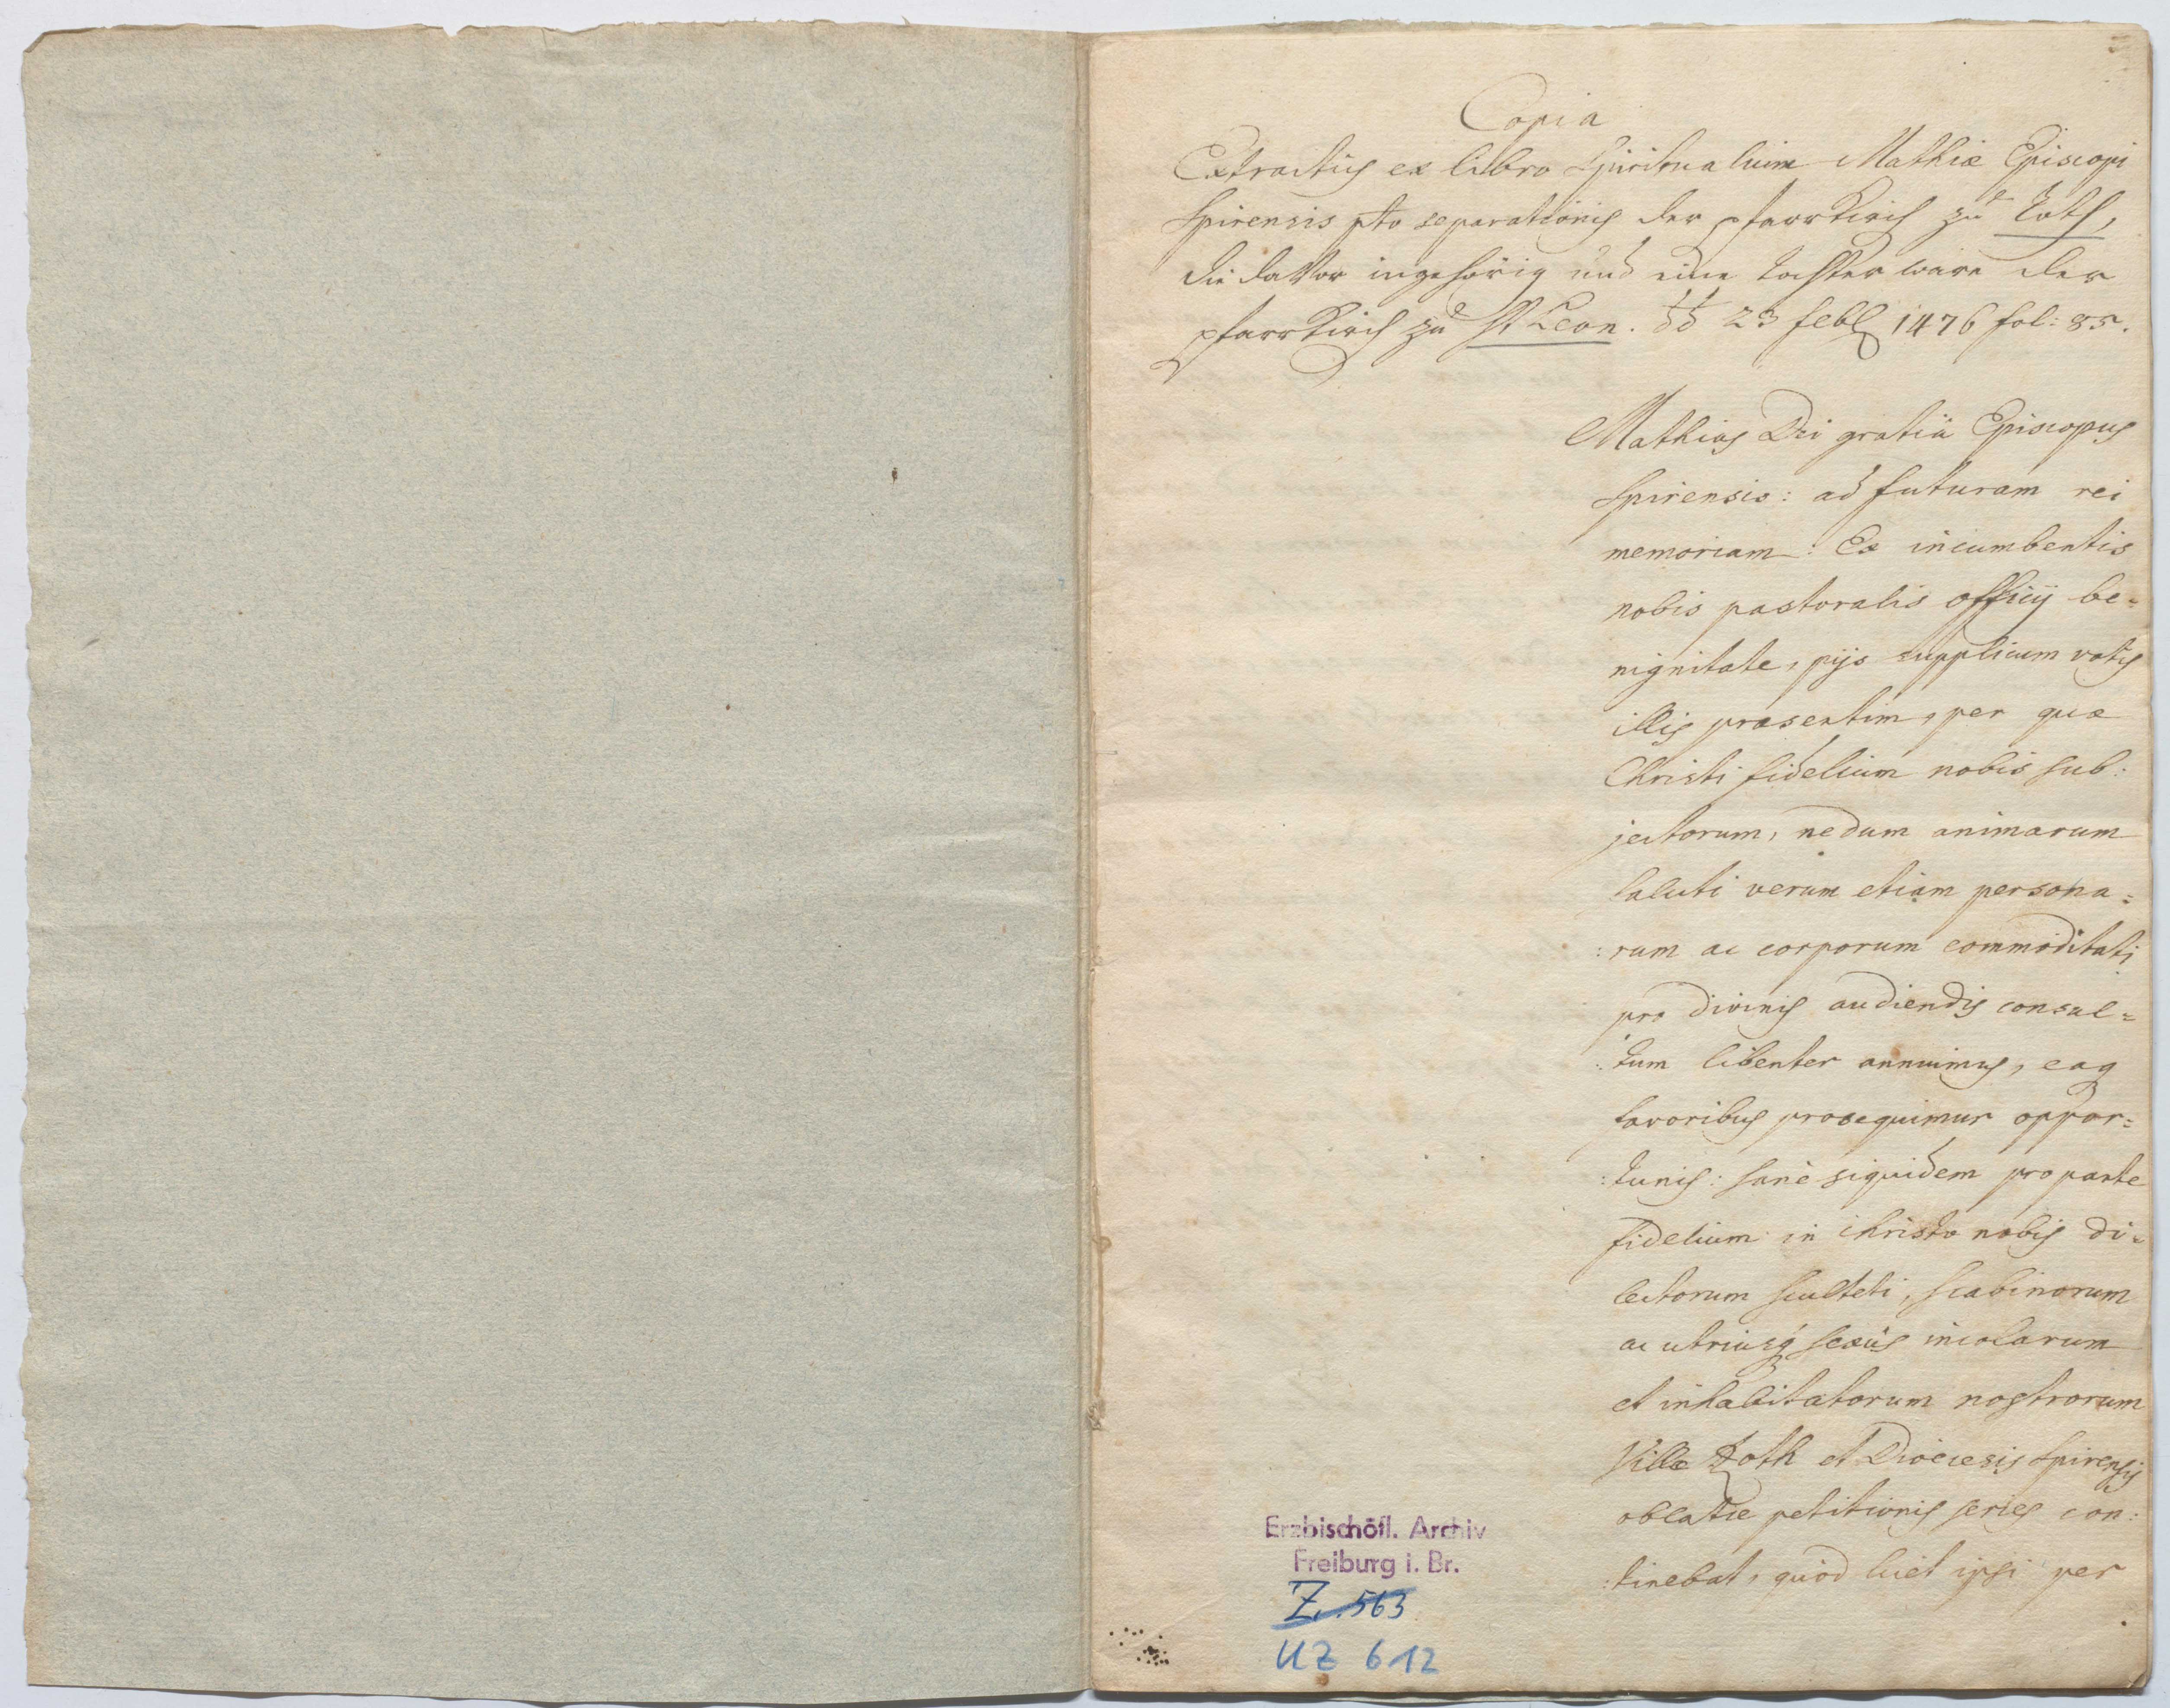 Copia
Extractus ex libro Spiritualium Mathiæ Episcopi
Spirensis pto separationis der pfarrkirch zu Roth,
die davor ingehörig und eine tochter ware der
pfarrkirch zu St Leon. dd 23 feb 1476 fol: 85.
Mathias Dei gratiâ Episcopus
Spirensis: ad futuram rei
memoriam: Ex incumbentis
nobis pastoralis officij be=
nignitate, pijs supplicum votis
illis præsertim, per quæ
Christi fidelium nobis sub:
jectorum, nedum animarum
saluti verum etiam persona=
:rum ac corporum commoditati
pro divinis audiendis consul=
:tum libenter annuimus, eaq
favoribus prosequimur oppor=
:tunis: sanè siquidem pro parte
fidelium in Christo nobis di=
lectorum sculteti, scabinorum
ac utriusq sexûs incolarum
et inhabitatorum nostrorum
Villæ Roth et Dioecesis Spirensis
oblatæ petitionis series con:
:tinebat, quòd licet ipsi per
Erzbischöfl. Archiv
Freiburg i. Br.
Z. 563
UZ 612